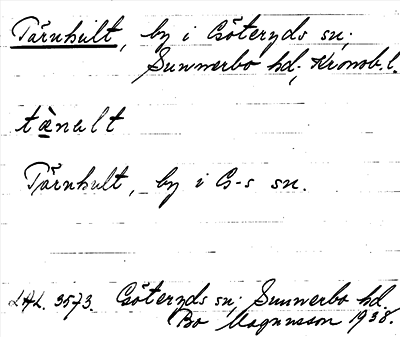 Tärnhult, by i Göteryds sn;
Sunnerbo hd; Kronob. l.
tä̀nalt
Tjärnhult, by i G-s sn.
LAL. 3573. Göteryds sn; Sunnerbo hd.
Bo Magnusson 1938.